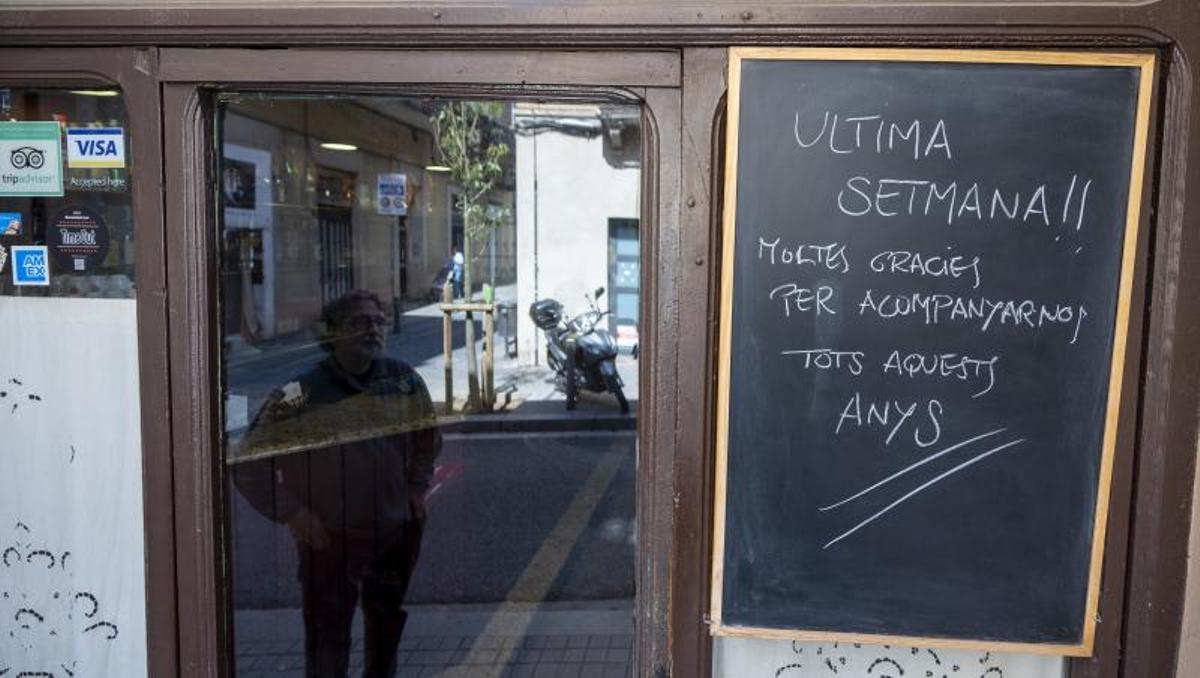 tripadvisor
VISA
Accepted here
TimeOut
AM
EX
ULTIMA
SETMANA!!
MOLTES GRACIES
PER ACOMPANYARNOS
TOTS AQUESTS
ANYS